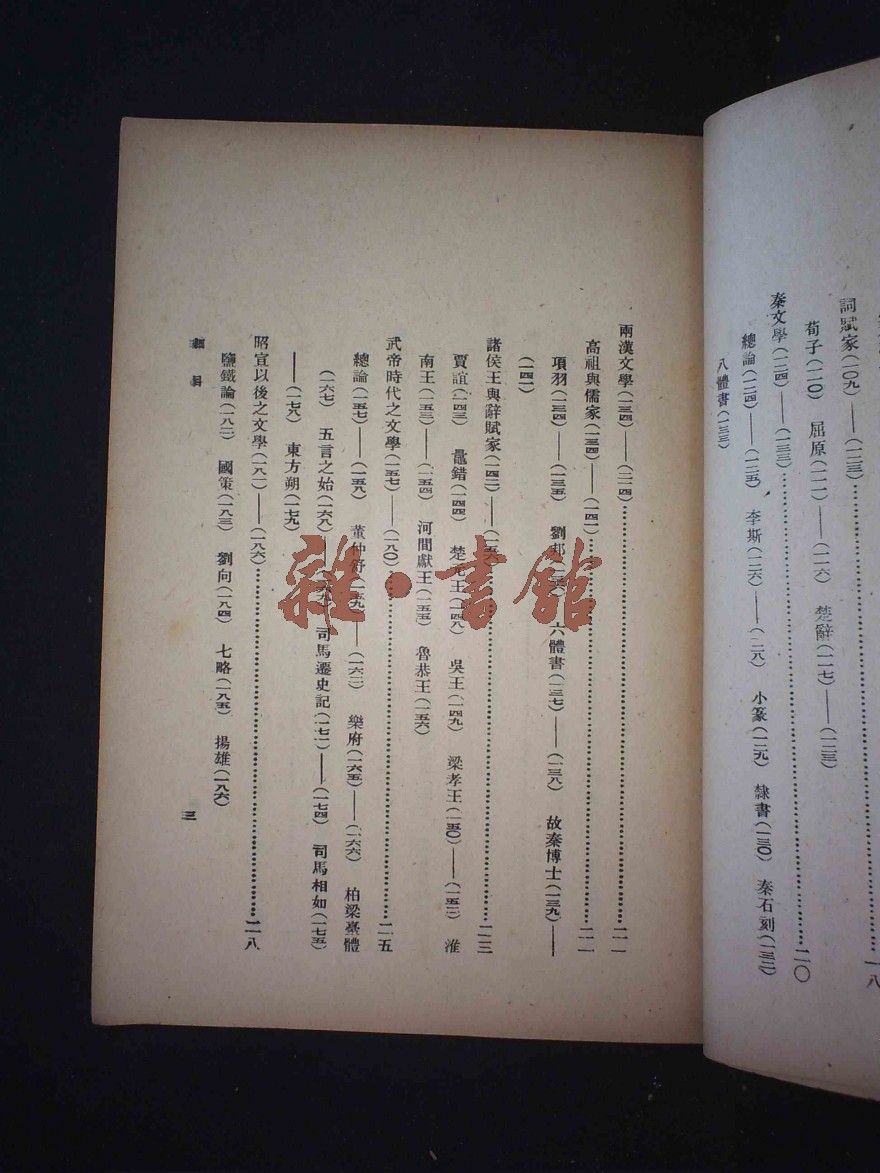 詞賦家(一〇九)——(一二三)……一八
荀子(一一〇) 屈原(一一一)——(一一六) 楚辭(一一七)——(一二三)
秦文學(一二四)——(一三三)……二〇
總論(一二四)——(一二五) 李斯(一二六)——(一二八) 小篆(一二九) 隸書(一三〇) 秦石刻(一三二)
八體書(一三三)
兩漢文學(一三四)——(二一四)……二一
高祖與儒家(一三四)——(一四一)……二一
項羽(一三四)——(一三五) 劉邦 六體書(一三七)——(一三八) 故秦博士(一三九)——
(一四一)
諸侯王與辭賦家(一四二)——……二三
賈誼(一四三) 鼂錯(一四四) 楚元王(一四八) 吳王(一四九) 梁孝王(一五〇)——(一五二) 淮
南王(一五三)——(一五四) 河間獻王(一五五) 魯恭王(一五六)
武帝時代之文學(一五七)——(一八〇)……二五
總論(一五七)——(一五八) 董仲舒(一五九)——(一六二) 樂府(一六五)——(一六六) 柏梁臺體
(一六七) 五言之始(一六八)—— 司馬遷史記(一七一)——(一七四) 司馬相如(一七五)
——(一七八) 東方朔(一七九)
昭宣以後之文學(一八一)——(一八六)……二八
鹽鐵論(一八二) 國策(一八三) 劉向(一八四) 七略(一八五) 揚雄(一八六)
細目
三
雜·書館